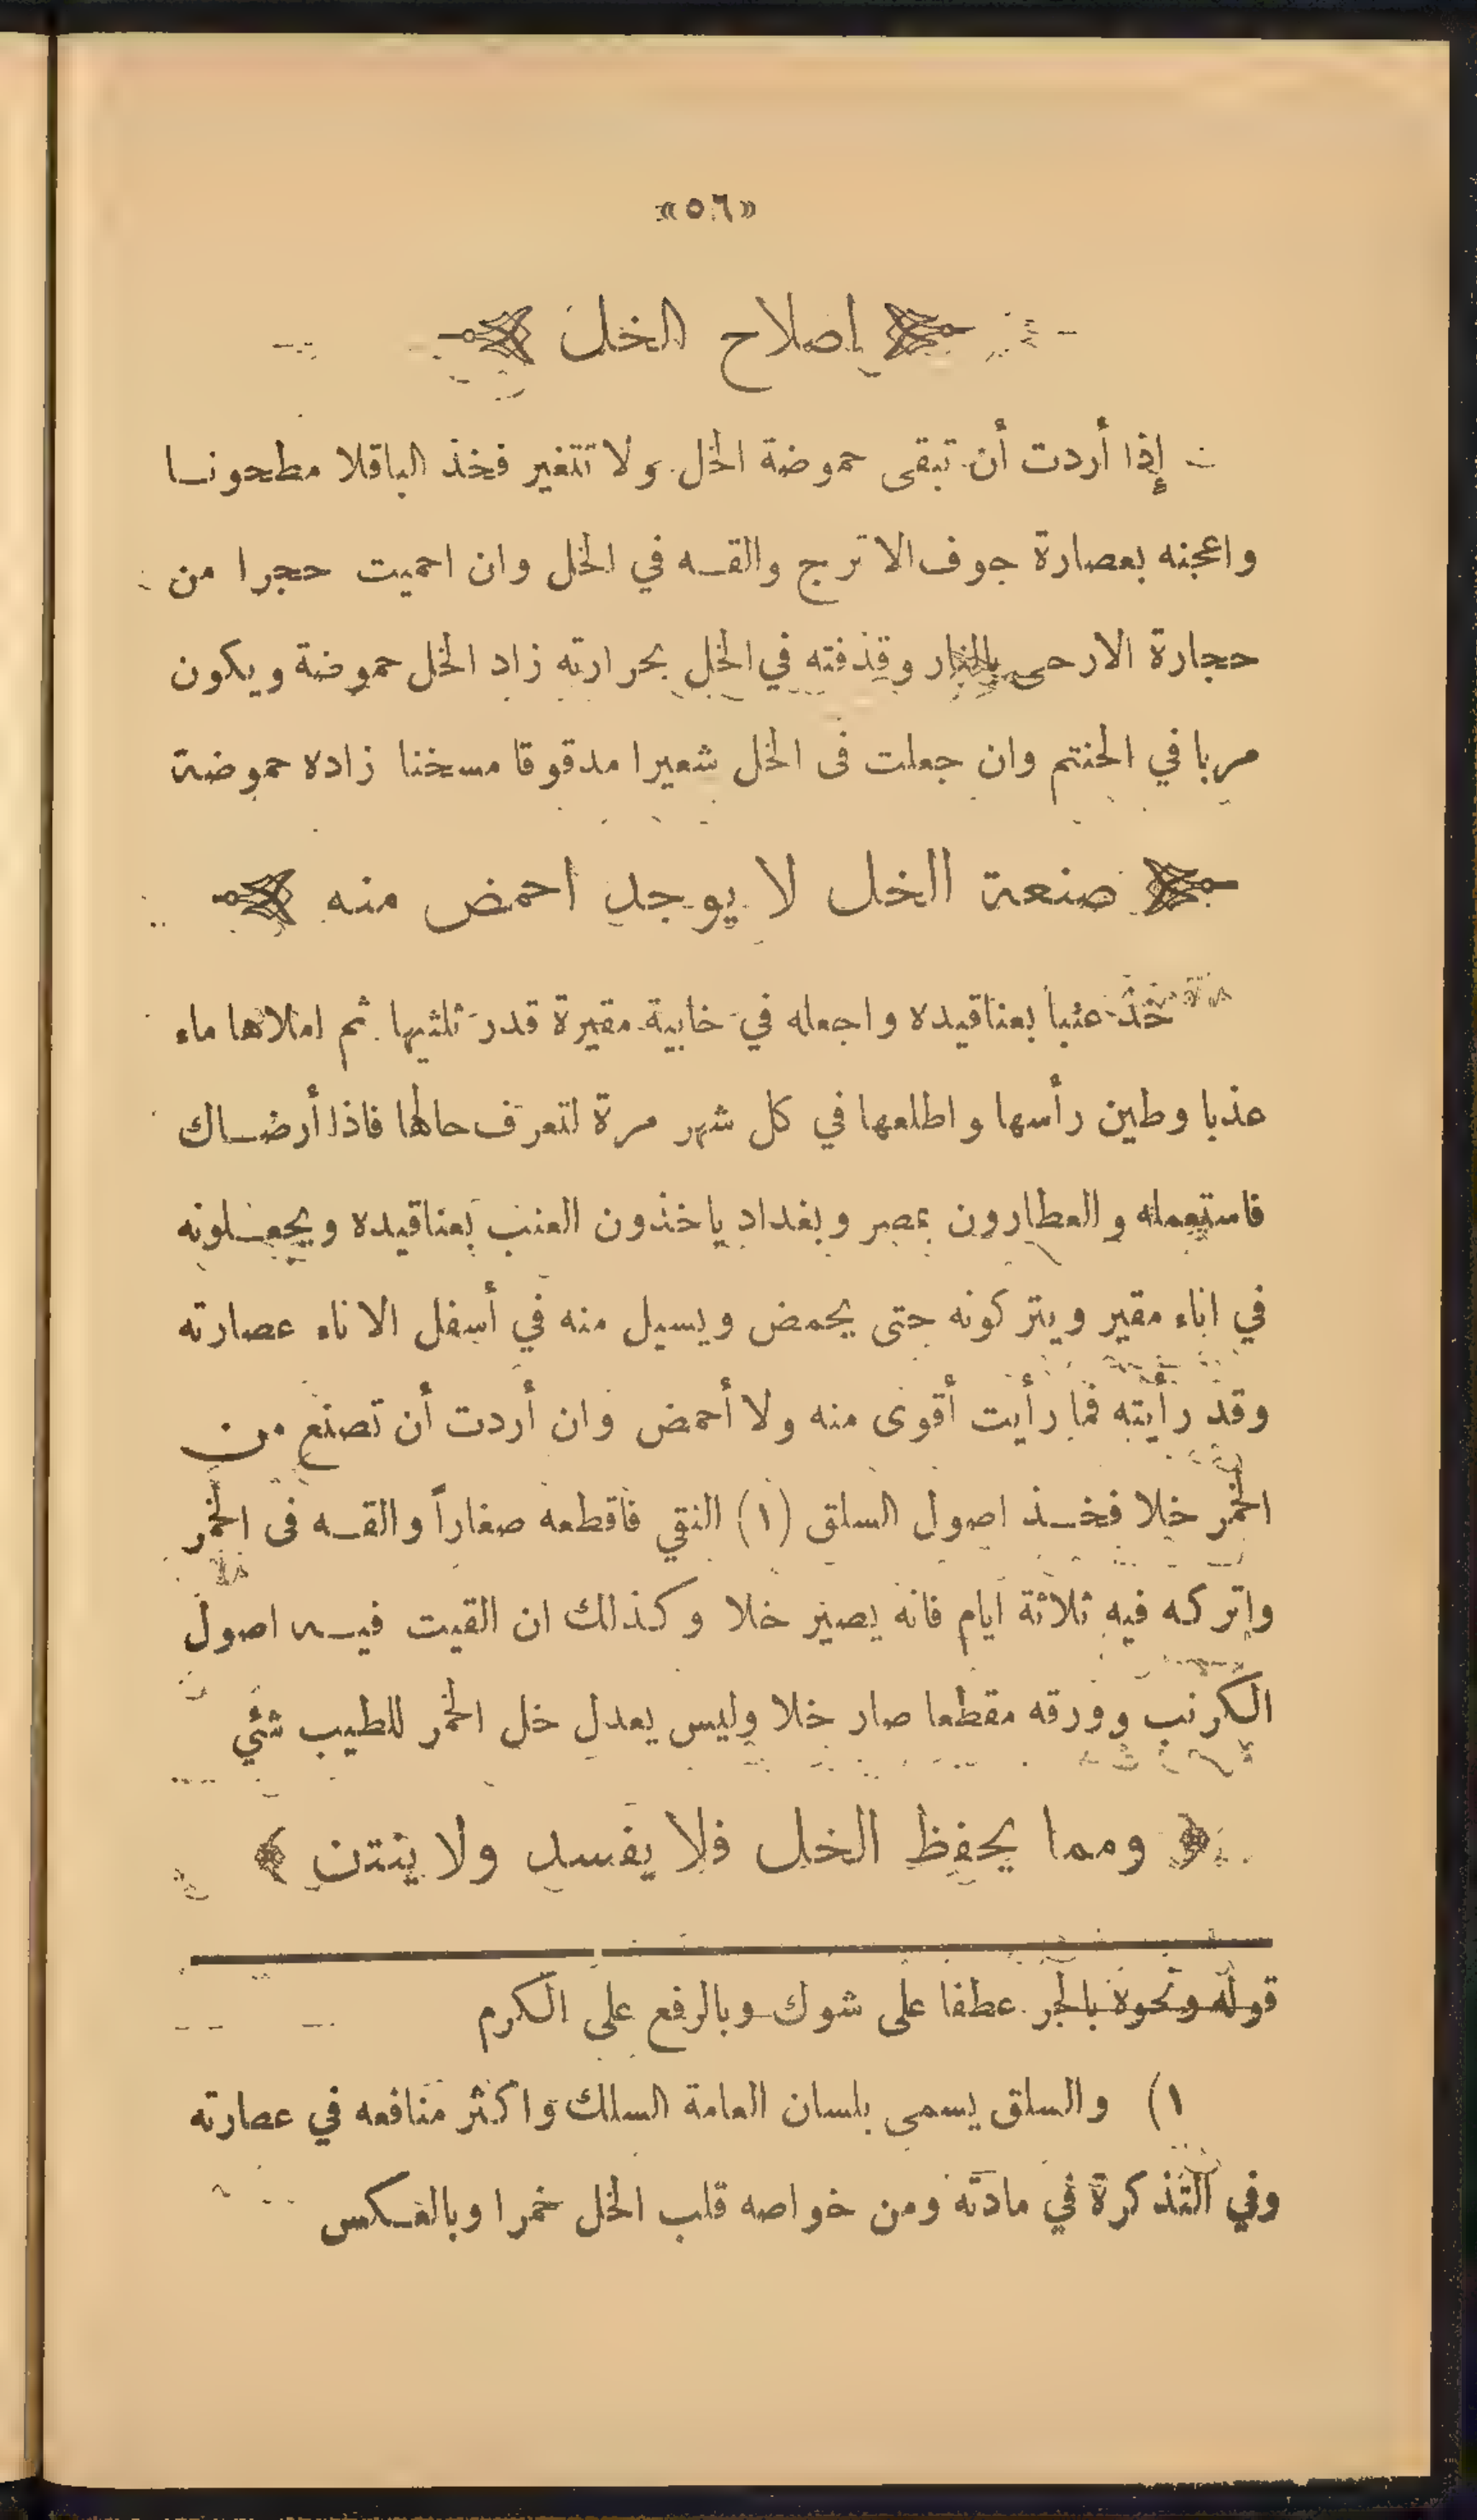 «٥٦»
إصلاح الخل
إذا أردت أن تبقى حموضة الخل ولا تتغير فخذ الباقلا مطحونا
واعجنه بعصارة جوف الاترج والقه في الخل وان احميت حجرا من
حجارة الارحى بالنار وقذفته في الخل بحرارته زاد الخل حموضة ويكون
مربا في الحنتم وان جعلت فى الخل شعيرا مدقوقا مسخنا زاده حموضة
صنعة الخل لا يوجد احمض منه
خذ عنبا بعناقيده واجعله في خابية مقيرة قدر ثلثيها ثم املاها ماء
عذبا وطين رأسها واطلعها في كل شهر مرة لتعرف حالها فاذا أرضاك
فاستعمله والعطارون بمصر وبغداد ياخذون العنب بعناقيده ويجعلونه
في اناء مقير ويتركونه حتى يحمض ويسيل منه في أسفل الاناء عصارته
وقد رأيته فما رأيت أقوى منه ولا أحمض وان أردت أن تصنع من
الخمر خلا فخذ اصول السلق (١) النقي فاقطعه صغاراً والقه فى الخمر
واتركه فيه ثلاثة ايام فانه يصير خلا وكذلك ان القيت فيه اصول
الكرنب وورقه مقطعا صار خلا وليس يعدل خل الخمر للطيب شئي
﴿ ومما يحفظ الخل فلا يفسد ولا ينتن ﴾
قوله ونحوه بالجر عطفا على شوك وبالرفع على الكرم
١) والسلق يسمى بلسان العامة السلك واكثر منافعه في عصارته
وفي التذكرة في مادته ومن خواصه قلب الخل خمرا وبالعكس